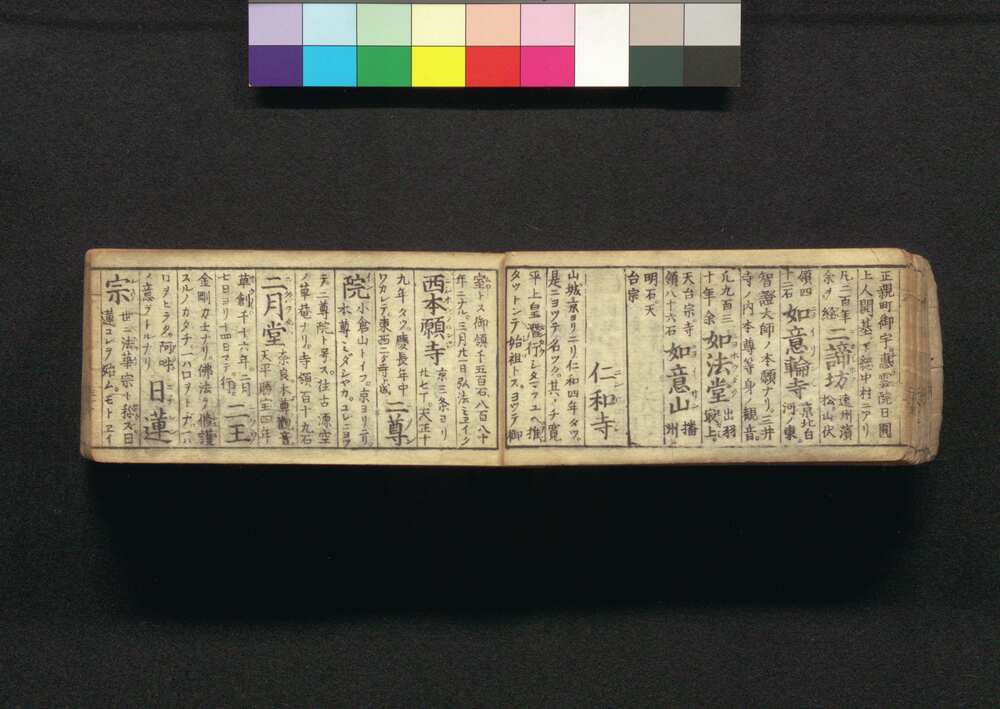 正親町御宇慈雲院日圓
上人開基下総中村ニアリ
凡二百年余ヲ経 二諦坊 遠州濱松山伏
領四十二石 如意輪寺 京北白河東
智證大師ノ本願ナリ三井
寺ノ内本尊等身ノ観音
凡九百三十年ノ余 如法堂 出羽最上
天台宗寺領八十六石 如意山 播州
明石天台宗
仁和寺
山城京ヨリ二リ仁和四年タツ
是ニヨツテ名ツク其ノチ寛
平上皇灌行シタマフユヘ推
タツトンテ始祖トス ヨツテ御
室トス御領千五百石八百八十
年ニナル三月廿一日弘法ミヱイク
西本願寺 京三条ヨリ廿七丁天正十
九年タツ慶長年中
ワカレテ東西二寺ト成 二尊
院 小倉山トイフ京ヨリ二リ
本尊ミダシヤカユレニヨツ
テ二尊院ト号ス往古源空
ノ草菴ナリ寺領百十九石
二月堂 奈良本尊観音天平勝宝四年
草創千十六年二月
七日ヨリ十四日マテ行 二王
金剛力士ナリ佛法ヲ修護
スルノカタチ一ハ口ヲトヂ一ハ
口ヲヒラク阿吽
ノ意ヲトルナリ 日蓮
宗 世ニ法華宗ト称ス日
蓮コレヲ始ムモトヱイ